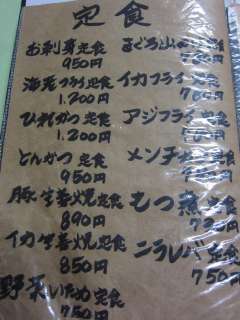 定食
お刺身定食
950円
海老フライ定食
1,200円
ひれかつ定食
1,200円
とんかつ定食
950円
豚生姜焼定食
890円
イカ生姜焼定食
850円
野菜いため定食
750円
まぐろ山
イカフライ定食
アジフライ定食
メンチ
定食
もつ煮定食
ニラレバ定食
750円